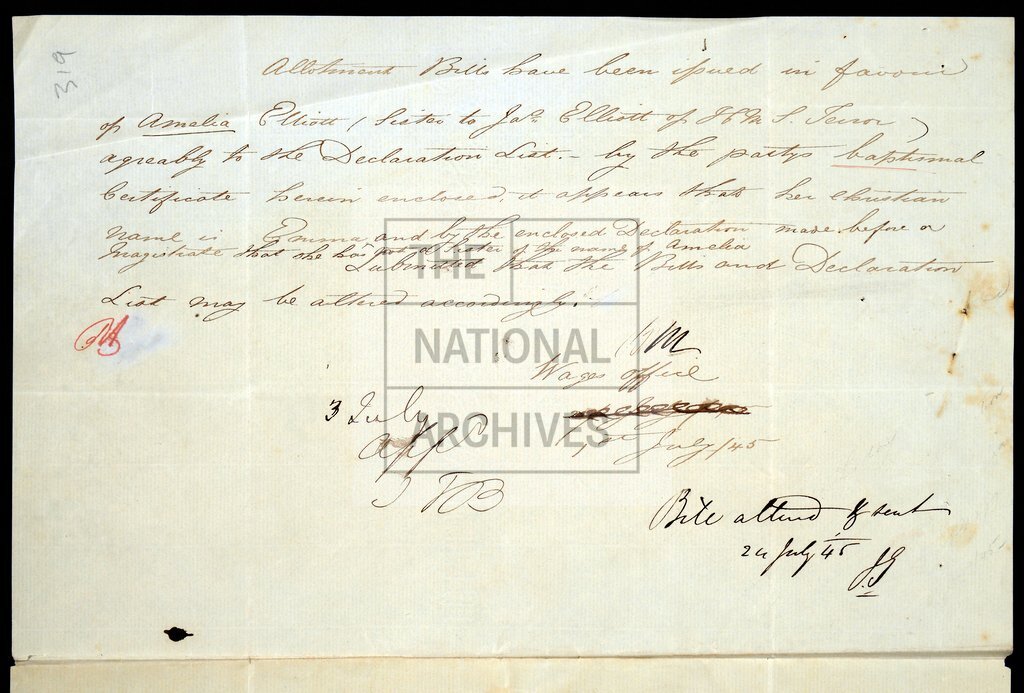 319
Allotment Bills have been issued in favour
of Amelia Elliott (Sister to Jas. Elliott of H M S. Terror)
agreably to the Declaration List. – by the partys baptismal
Certificate herein enclosed, it appears that her Christian
name is Emma, and by the enclosed Declaration made before a
Magistrate that she has not a sister of the name of Amelia
Submitted that the Bills and Declaration
List may be altered accordingly.
Wages office
3 July
1st July/45
appd
JTB
Bill altered & sent
24 July 45
JJ
THE
NATIONAL
ARCHIVES